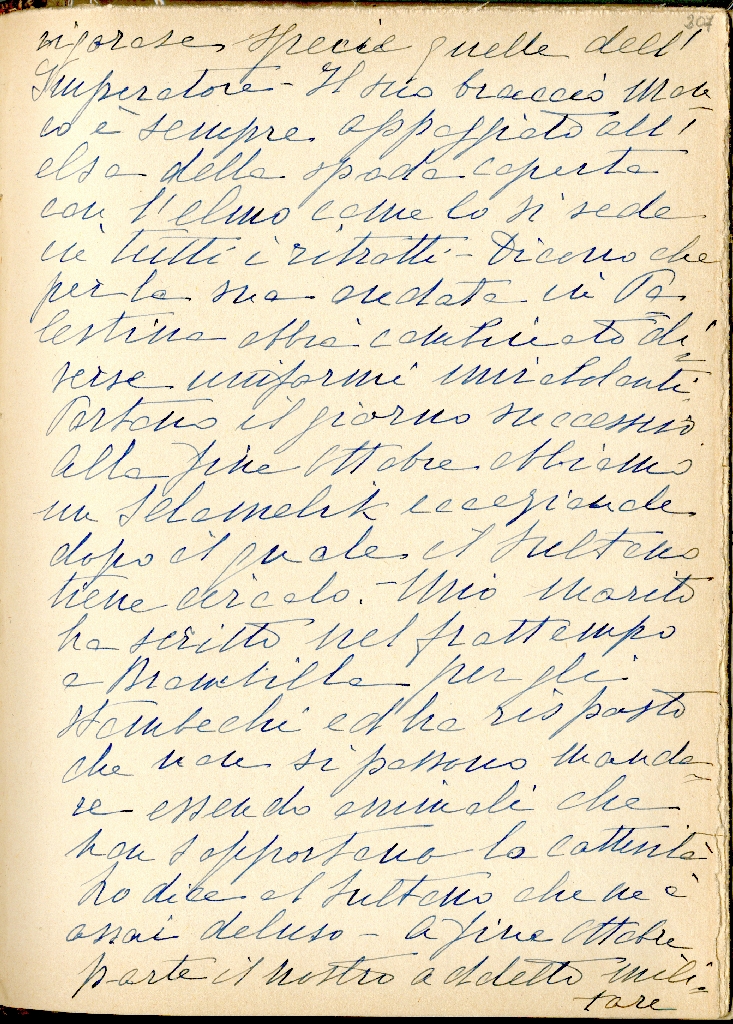 207
vigorose specie quelle dell'
Imperatore - Il suo braccio man-
co è sempre appoggiato all'
elsa della spada coperta
con l'elmo come lo si vede
in tutti i ritratti - Dicono che
per la sua andata in Pa-
lestina abbia combinato di-
verse uniformi mirabolanti.
Partono il giorno successivo.
Alla fine Ottobre abbiamo
un Selamelik eccezionale
dopo il quale il Sultano
tiene circolo. - Mio marito
ha scritto nel frattempo
a Brambilla per gli
stambechi ed ha risposto
che non si possono manda-
re essendo animali che
non sopportano la cattività
Lo dice al Sultano che ne è
assai deluso - A fine Ottobre
parte il nostro addetto mili-
tare